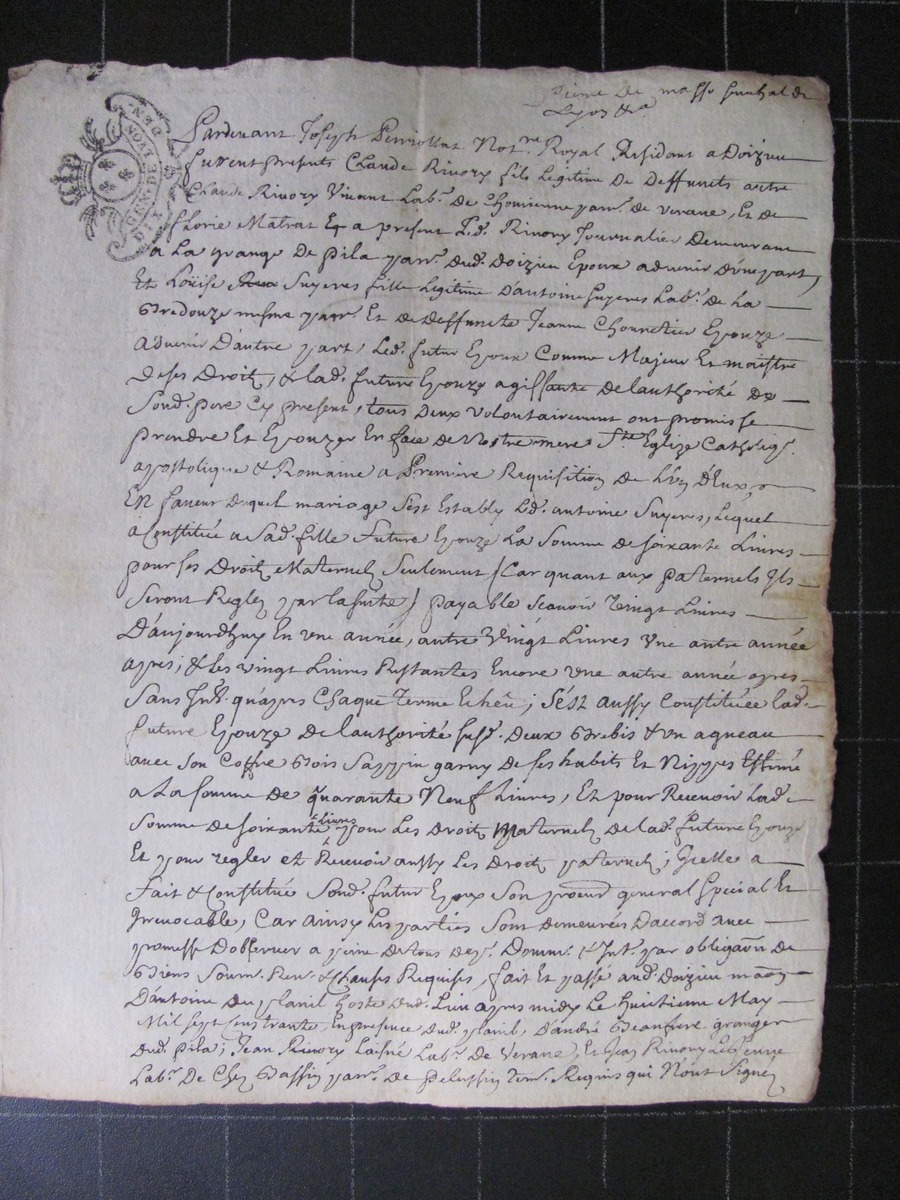 GEN. DE LYON
DIX DEN.
Lyon &a
Pardevant Joseph Perriollat Notre Royal Residant a Doizieu
furent presents Claude Rivory fils Legitime De Deffunts autre
Claude Rivory Vivant Labr. De parr. de verane, Et de
florie Matrat Et a present Led. Rivory Journalier Demeurant
a La grange De pila parr. dud. Doizieu Epoux advenir d'une part,
Et Loüise Suyeres fille Legitime d'antoine Suyeres Labr. de La
Bredouze mesme parr. Et de deffuncte Jeanne Chorretier Epouze
advenir D'autre part, Led. futur Epoux Comme Majeur Et maistre
De ses Droits, & lad. future Epouze agissante de lauthorité de
Sond. pere Cy present, tous Deux volontairement ont promis se
prendre Et Epouzer En face de Nostre mere Ste Eglize Catholiq.
apostolique & Romaine a Premiere Requisition de L'un d'Eux,
En faveur duquel mariage s'est Estably Led. antoine Suyeres, Lequel
a Constitué a Sad. fille Future Epouze La Somme de soixante Livres
pour ses Droits Maternels Seulement (Car quant aux paternels Ils
Seront Reglez par la suitte) payable Scavoir Vingt Livres
D'aujourdhuy En une année, autre Vingt Livres Une autre année
apres, & Les vingt Livres Restantes Encore une autre année apres
Sans Int. qu'apres Chaque Terme Echeu; s'est aussy Constituée lad.
future Epouze de lauthorité susd. Deux Brebis & un agneau
avec son Coffre Bois Sappin garny de ses habits Et Nippes Estimé
a La somme de quarante Neuf Livres, Et pour Recevoir Lad.
Somme de soixante livres pour Les Droits Maternels de lad. future Epouze
Et pour regler et Recevoir aussy Les Droits paternels; Icelle a
Fait & Constitué Sond. futur Epoux Son procur general special Et
Irrevocable, Car ainsy Les parties Sont demeurées Daccord avec
promesse D'observer a peine de tous dep. Domm. & Int. par obligaon de
Biens Soum. Ren. & Clauses Requises, fait Et passé aud. Doizieu maon
D'antoine du planil hoste dud. Lieu apres midy Le huictieme May
Mil sept sens trante, En presence dud. planil, D'andré Beaufrere granger
dud. pila; Jean Rivory Laisné Labr. De Verane, Et Jean Rivory Le jeune
Labr. De Chez Bassin parr. de Pelussin tem. Requis qui N'ont Signé,